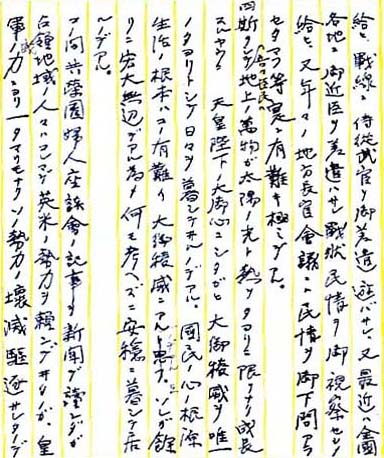 給ヒ、戦線ニ侍従武官ヲ御差遣遊バサレ、又最近ハ全国
各地ニ御近臣ヲ差遣ハサレ戦状民情ヲ御視察セシメ
給ヒ、又年々ノ地方長官会議ニハ民情ヲ御下問アラ
セラルヽ等眞ニ有難キ極ミデアル。
四斯クシテ地上ノ萬物ガ太陽ノ光ト熱ヲタヨリニ限リナク成長
スルヤウニ 天皇陛下ノ大御心ニシタガヒ大御稜威ヲ唯一
ノタヨリトシテ日々ヲ暮シテ居ルノデアル。国民ノ心ノ根源
生活ノ根本ハコノ有難イ大御稜威ニアルト思フ。ソレガ餘
リニ宏大無辺デアル為メ何モ考ヘズニ安穏ニ暮シテ居
ルノデアル。
コノ間共榮圏婦人座談會ノ記事ヲ新聞デ讀ンダガ
占領地域ノ人々ハコレマデ英米ノ勢力ヲ頼ンデ居タガ、皇
軍ノ威力ニヨリ一タマリモナクソノ勢力ノ壊滅駆逐サレタノデ